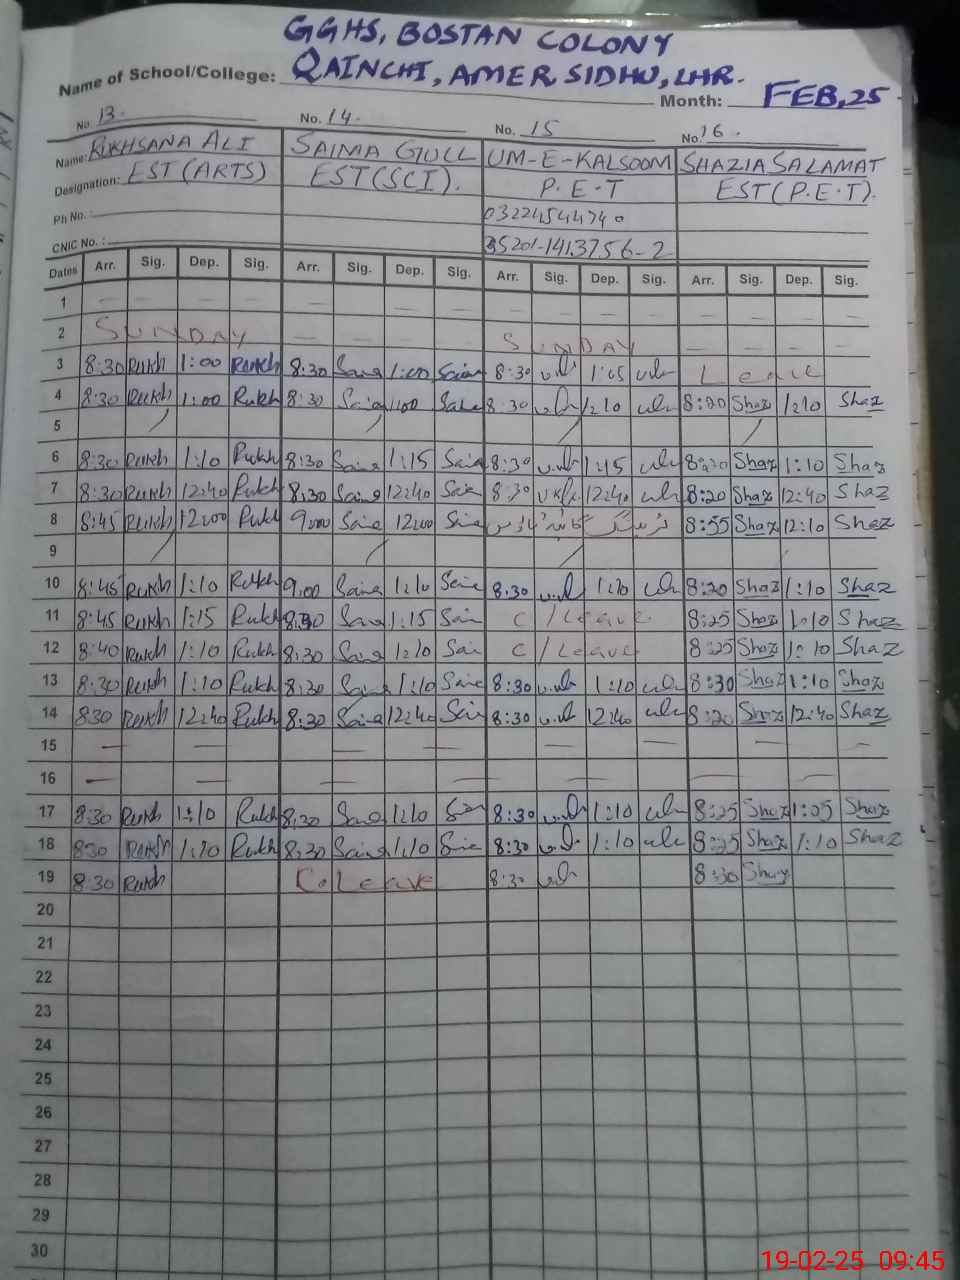 GGHS, BOSTAN COLONY
Name of School/College: QAINCHI, AMER SIDHU, LHR.
Month: FEB, 25
No. 13. No. 14. No. 15 No. 16.
Name: RUKHSANA ALI SAIMA GULL UM-E-KALSOOM SHAZIA SALAMAT
Designation: EST (ARTS) EST (SCI). P.E.T EST (P.E.T).
Ph No.: 03224544740
CNIC No.: 35201-1413756-2
Dates Arr. Sig. Dep. Sig. Arr. Sig. Dep. Sig. Arr. Sig. Dep. Sig. Arr. Sig. Dep. Sig.
1 — — — — — — — — — — — — — — — —
2 SUNDAY — — — — SUNDAY — — — —
3 8:30 Rukh 1:00 Rukh 8:30 1:00 8:30 1:05 Leave
4 8:30 Rukh 1:00 Rukh 8:30 1:00 8:30 1:10 8:20 Shaz 1:10 Shaz
5
6 8:30 Rukh 1:10 Rukh 8:30 1:15 8:30 1:15 8:20 Shaz 1:10 Shaz
7 8:30 Rukh 12:40 Rukh 8:30 12:40 8:30 12:40 8:20 Shaz 12:40 Shaz
8 8:45 Rukh 12:00 Rukh 9:00 12:00 ٹریننگ 8:55 Shaz 12:10 Shaz
9
10 8:45 Rukh 1:10 Rukh 9:00 1:10 8:30 1:10 8:20 Shaz 1:10 Shaz
11 8:45 Rukh 1:15 Rukh 8:30 1:15 C/Leave 8:25 Shaz 1:10 Shaz
12 8:40 Rukh 1:10 Rukh 8:30 1:10 C/Leave 8:25 Shaz 1:10 Shaz
13 8:30 Rukh 1:10 Rukh 8:30 1:10 8:30 1:10 8:30 Shaz 1:10 Shaz
14 8:30 Rukh 12:40 Rukh 8:30 12:40 8:30 12:40 8:20 Shaz 12:40 Shaz
15 — — — — — — — —
16 — — — — — — — —
17 8:30 Rukh 1:10 Rukh 8:30 1:10 8:30 1:10 8:25 Shaz 1:05 Shaz
18 8:30 Rukh 1:10 Rukh 8:30 1:10 8:30 1:10 8:25 Shaz 1:10 Shaz
19 8:30 Rukh C.Leave 8:30 8:30 Shaz
20
21
22
23
24
25
26
27
28
29
30
19-02-25 09:45